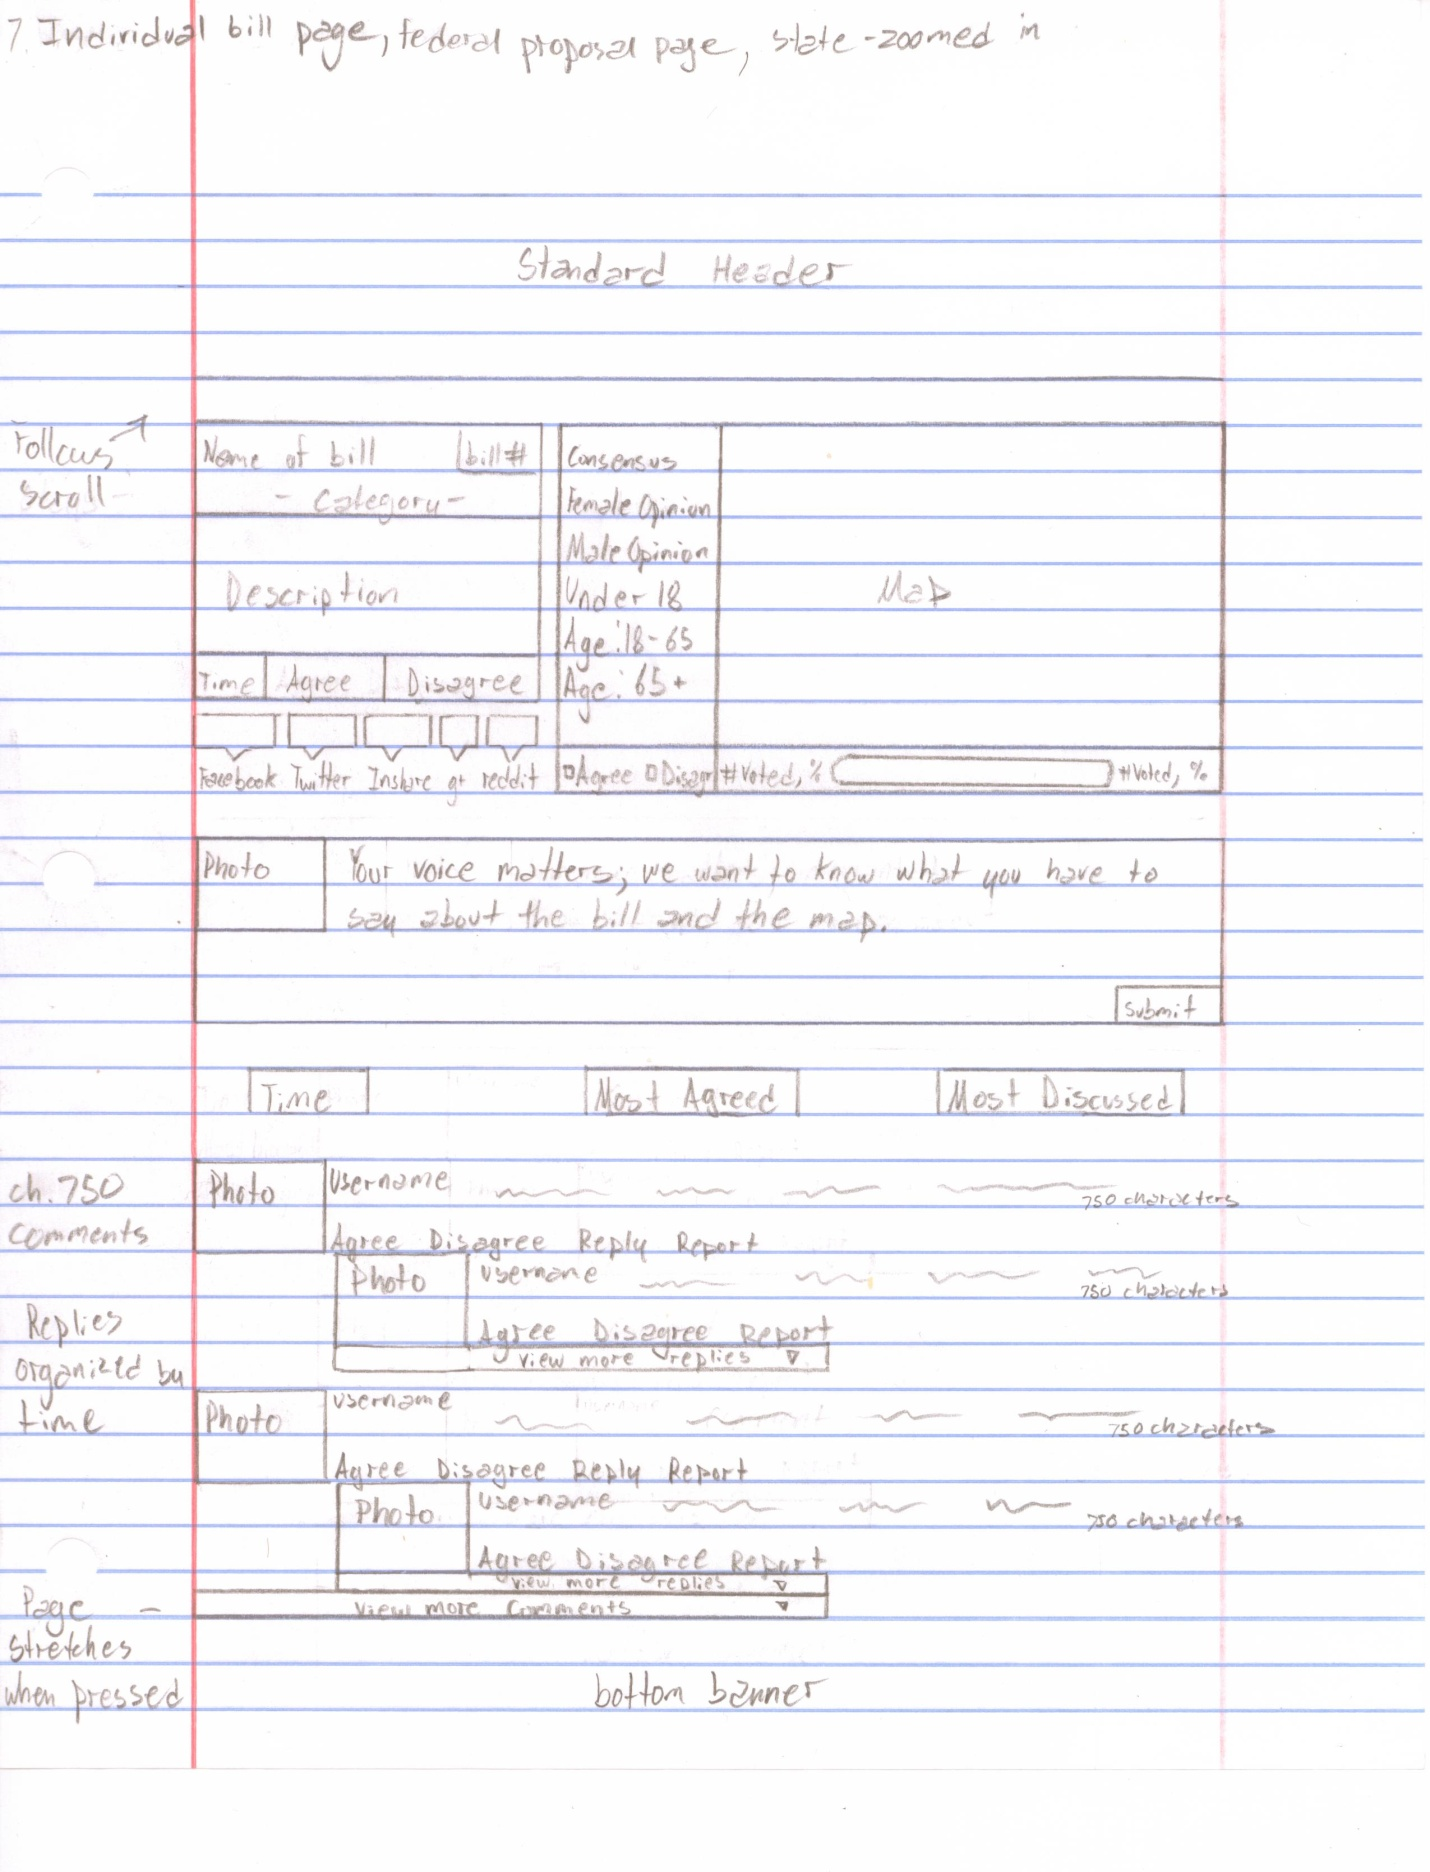 7. Individual bill page, federal proposal page, state-zoomed in
Standard Header
Follows
Scroll
Name of bill bill#
- Category -
Description
Time Agree Disagree
Facebook Twitter Inshare g+ reddit
Consensus
Female Opinion
Male Opinion
Under 18
Age: 18-65
Age: 65+
Agree Disagr
Map
#Voted, % #Voted, %
Photo
Your voice matters; we want to know what you have to
say about the bill and the map.
Submit
Time Most Agreed Most Discussed
ch. 750
Comments
Photo Username 750 characters
Agree Disagree Reply Report
Photo Username 750 characters
Agree Disagree Report
View more replies
Replies
organized by
time
Photo Username 750 characters
Agree Disagree Reply Report
Photo Username 750 characters
Agree Disagree Report
View more replies
View more Comments
Page -
Stretches
when pressed
bottom banner